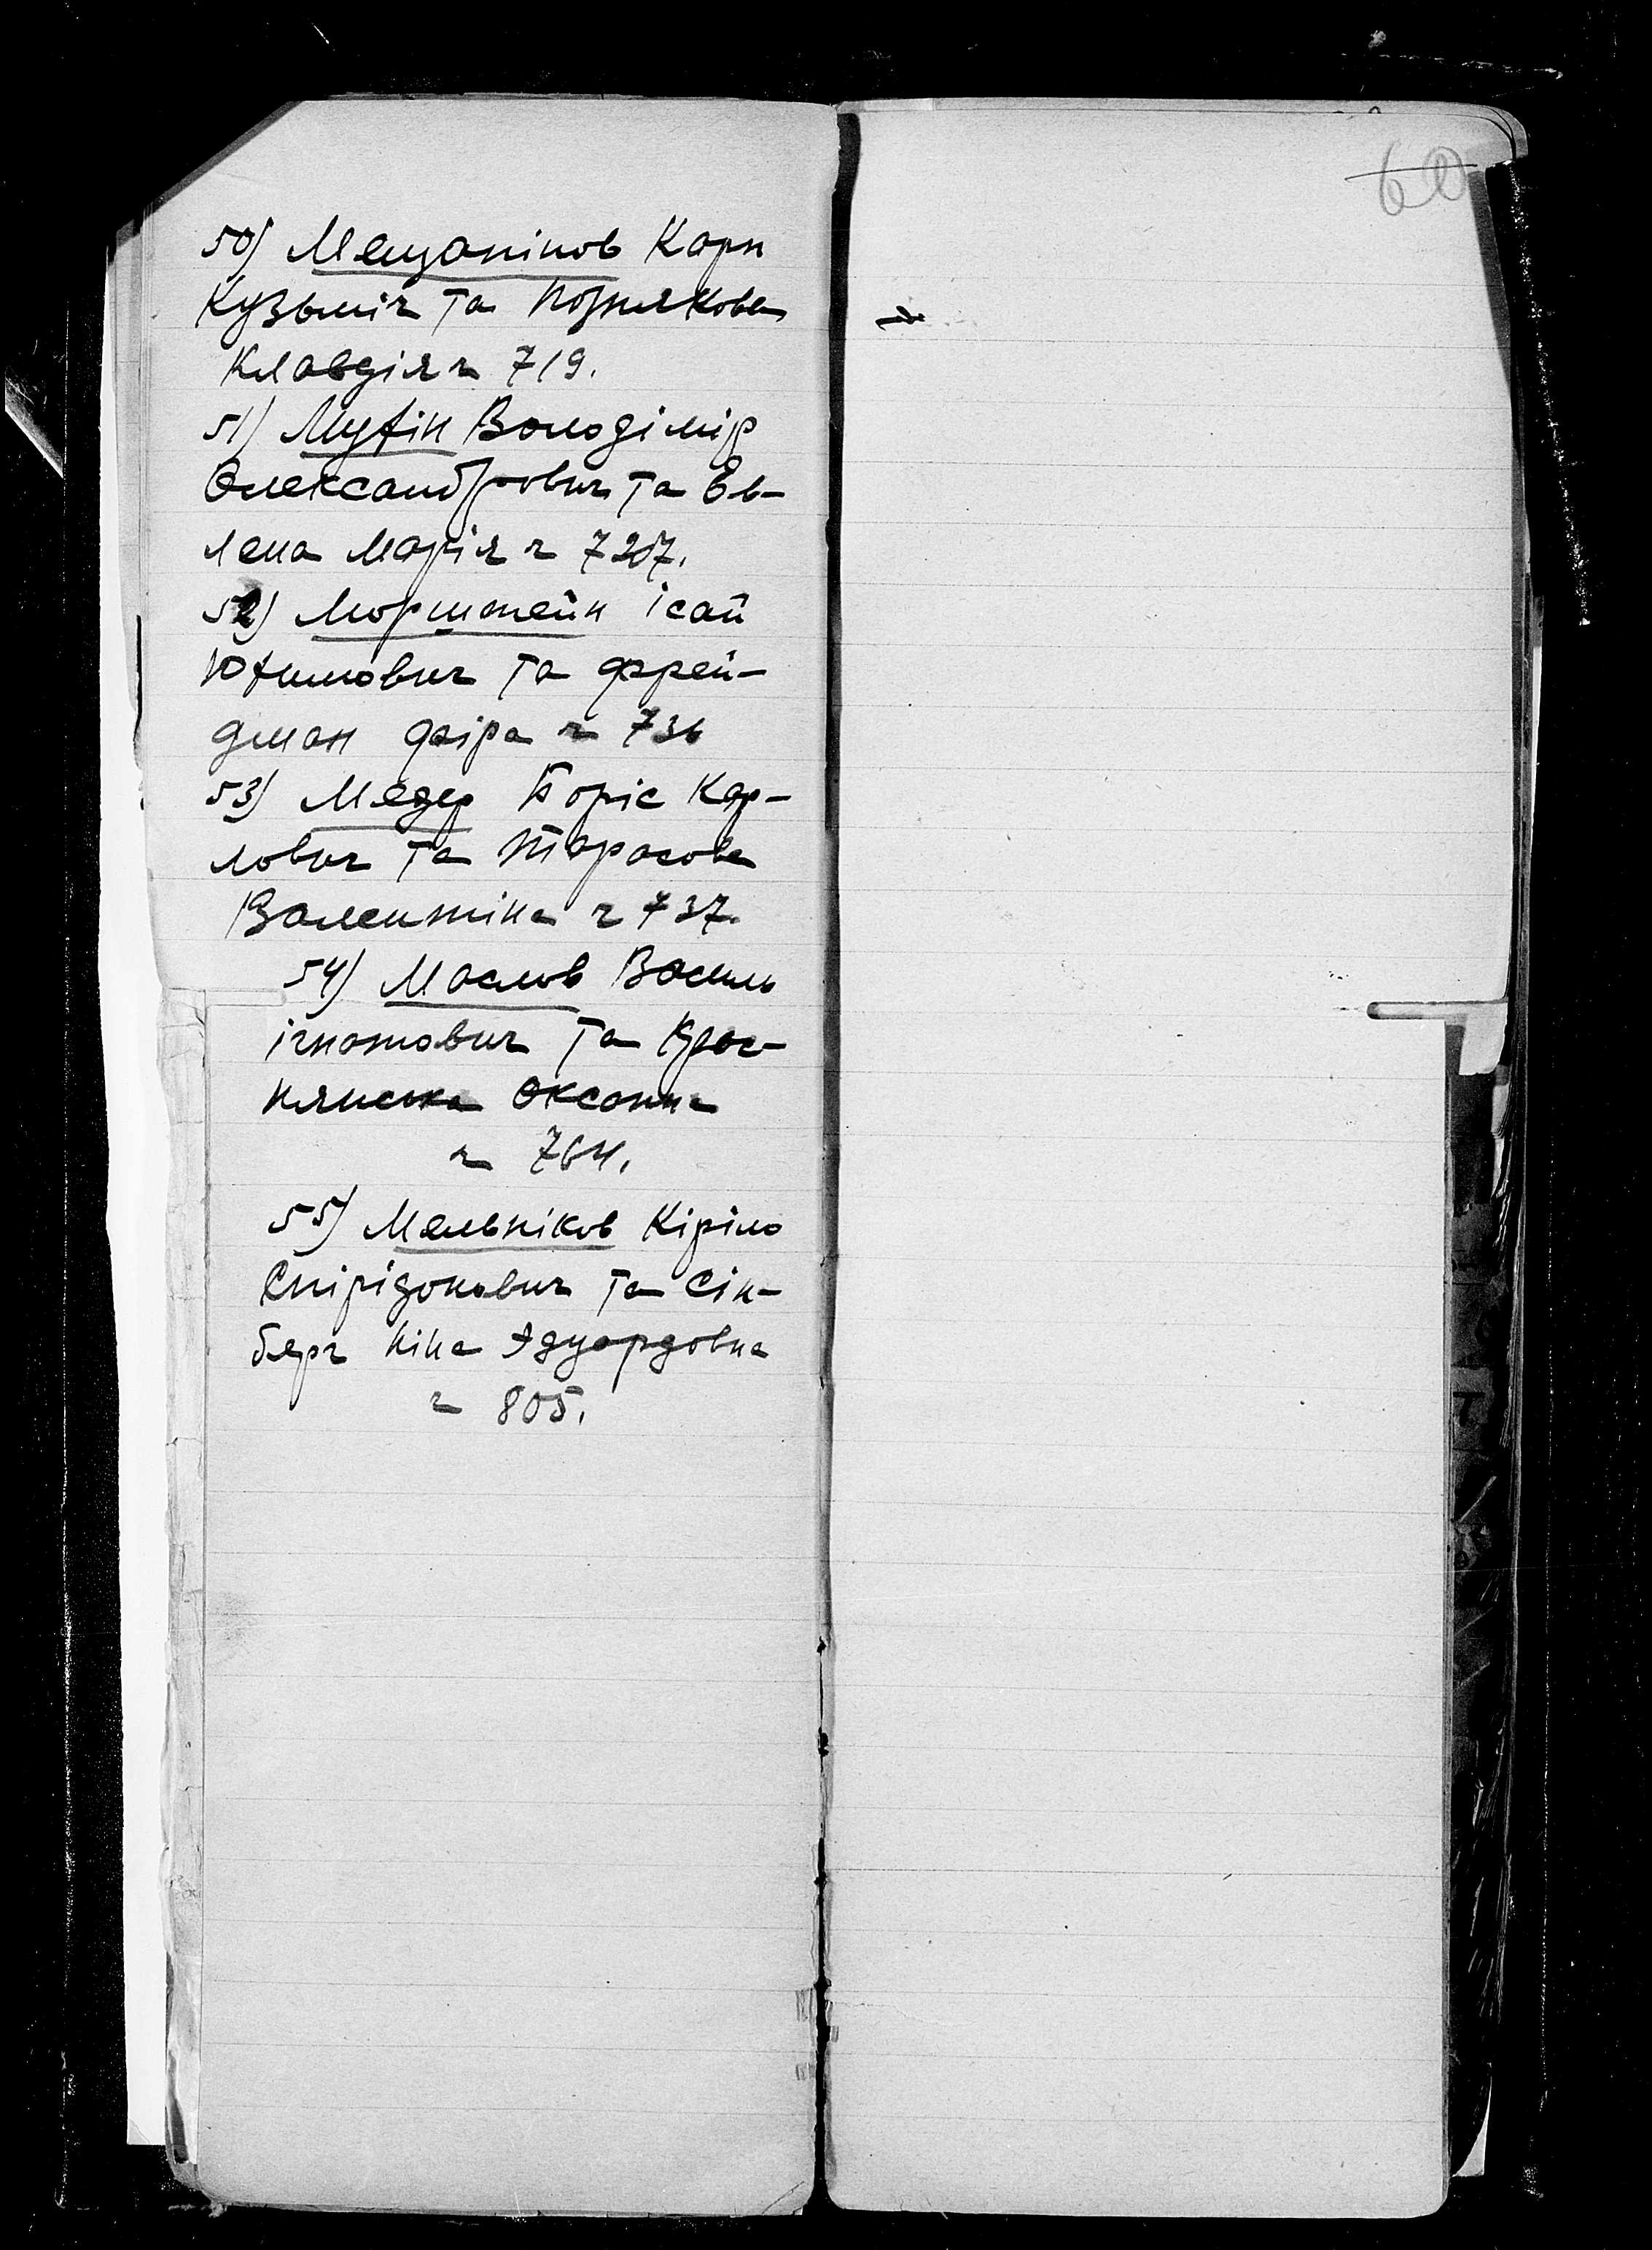 50) Мещанінов Карп
Кузьміч та Познякова
Клавдія ч 719.
51) Мутін Володімір
Олександрович та Ев-
лена Марія ч 727.
52)Морштейн Ісай
Юхимович та Фрей-
дман Фаіра ч 736
53) Медер Боріс Кар-
лович та Тарасова
Валентіна ч 737.
54) Маслов Василь
Ігнатович та Крас-
нянська Оксана
ч 764.
55) Мельніков Кіріло
Спірідонович та Сін-
берг Ніна Эдуардовна
ч 805.
60